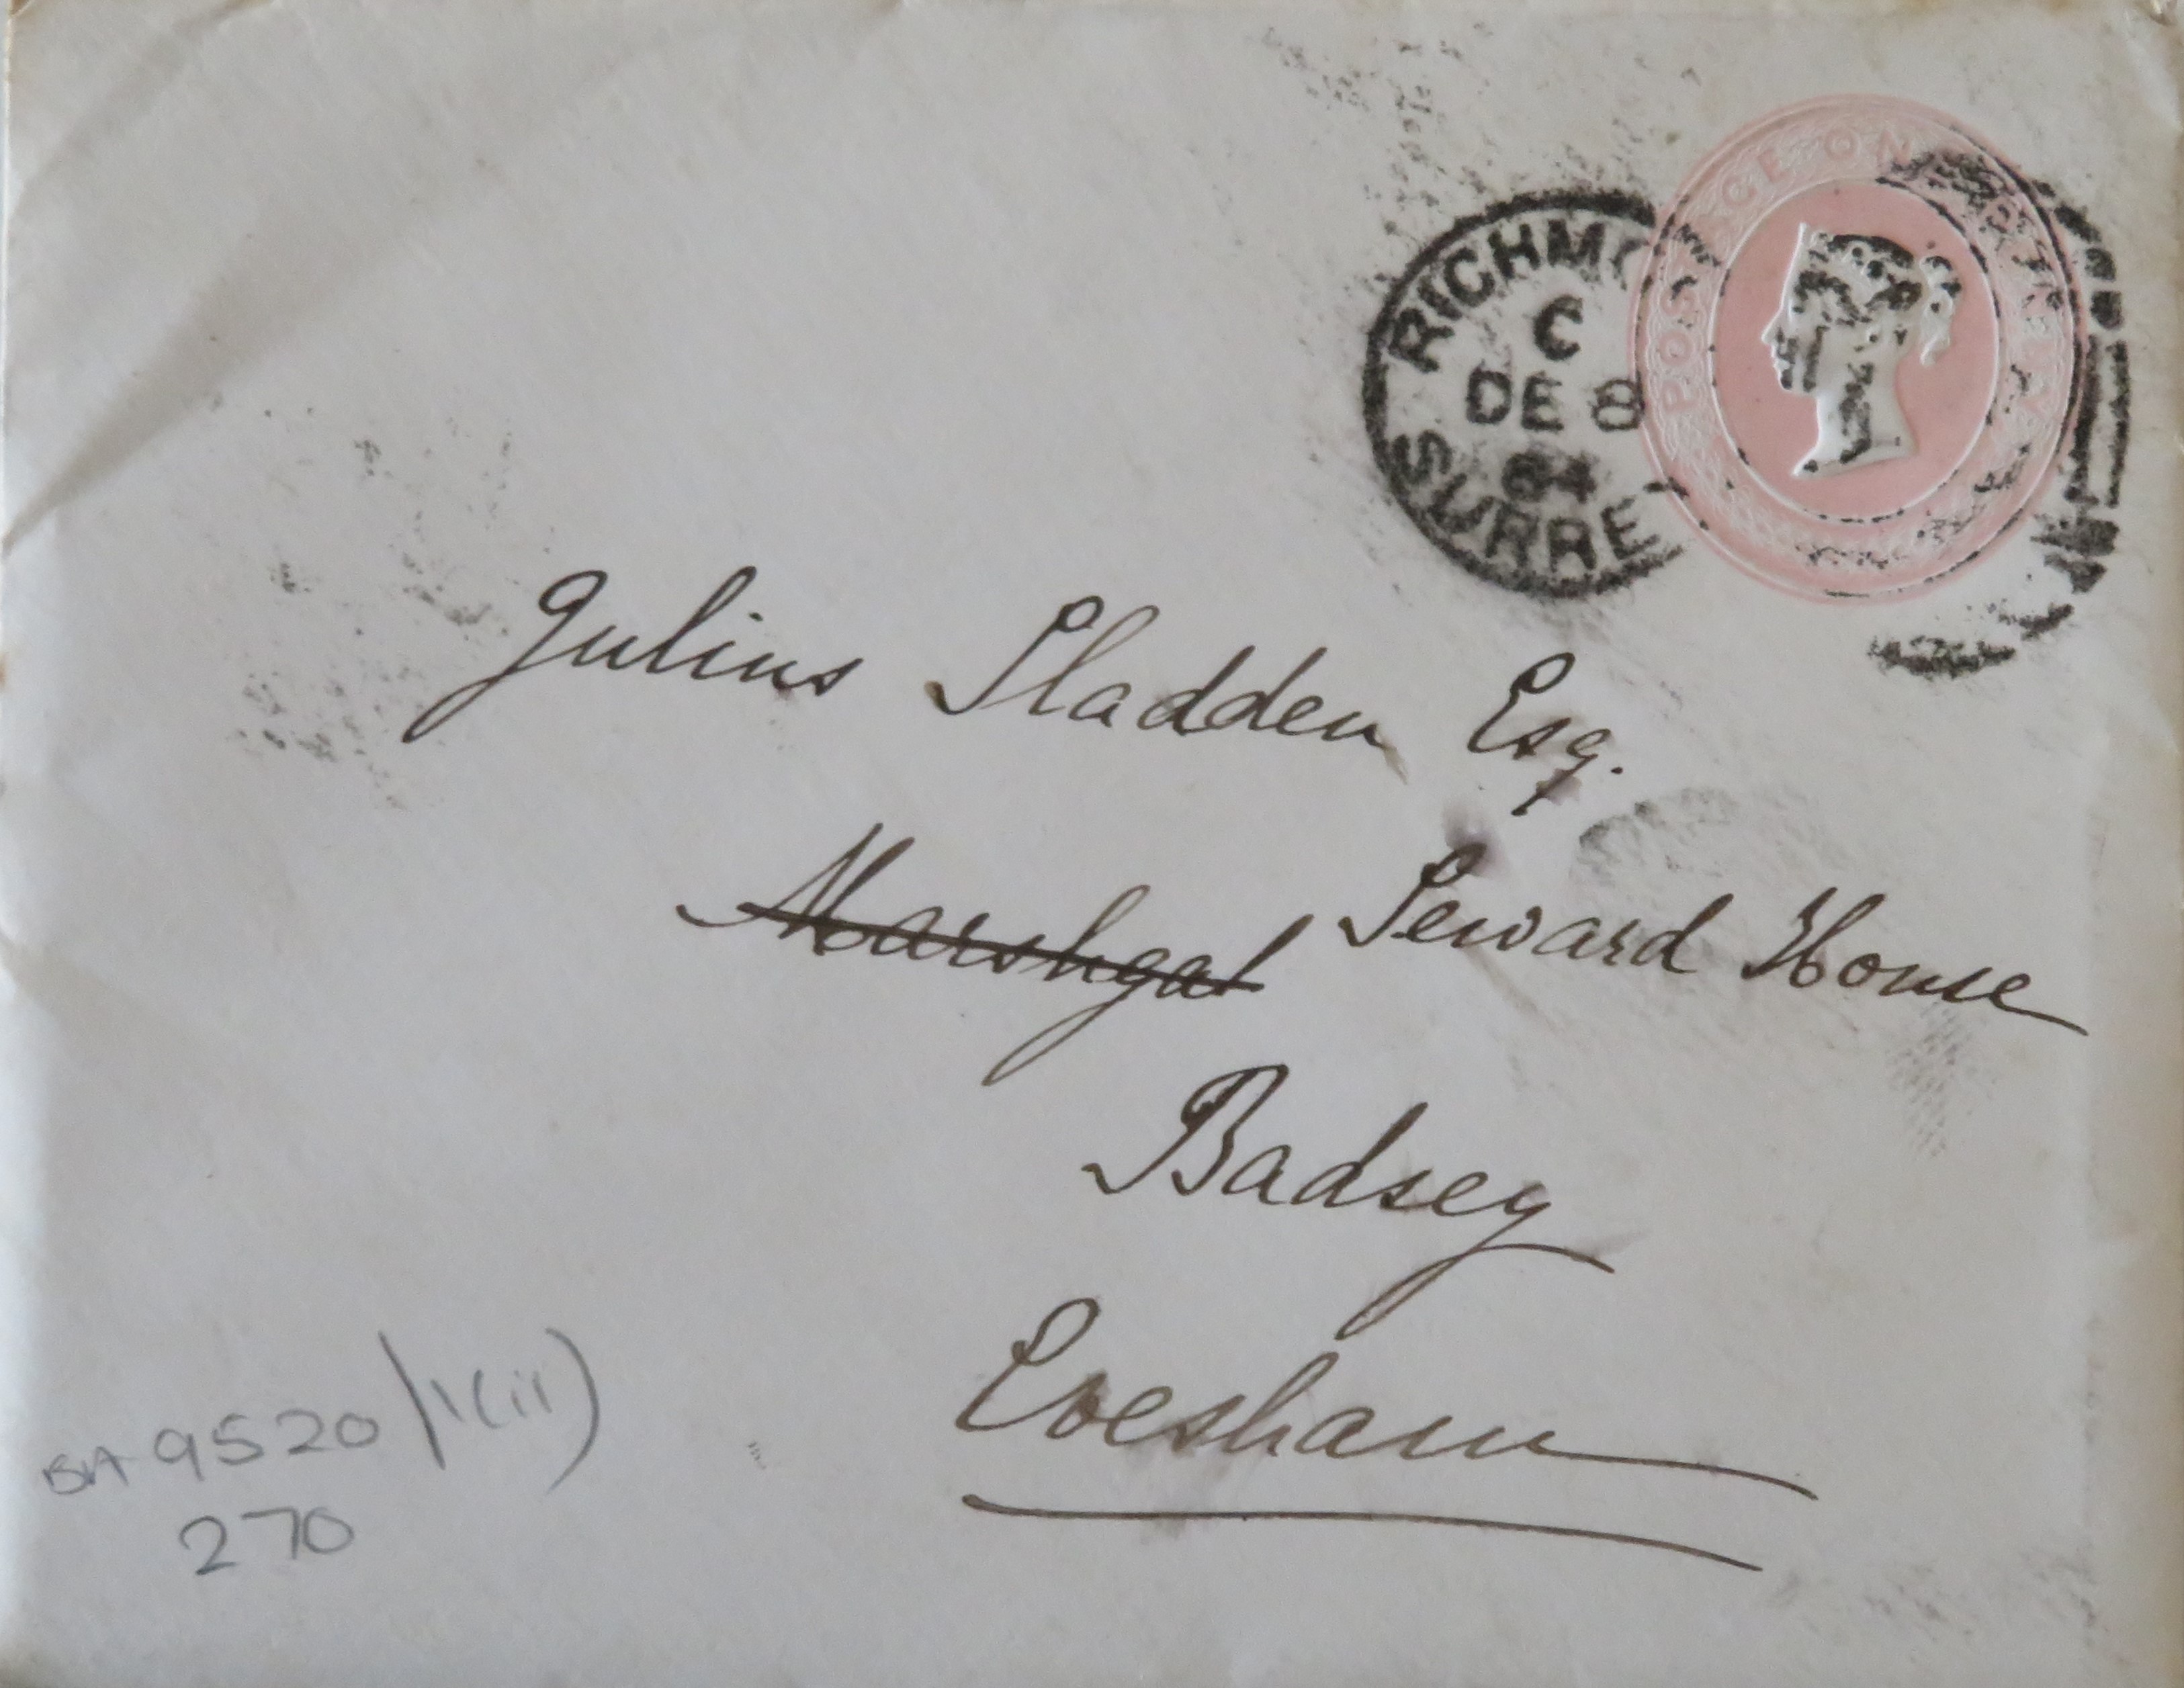 POSTAGE ONE PENNY
RICHMO
C
DE 8
84
SURREY
Julius Sladden Esq.
Marshgat Seward House
Badsey
Evesham
BA 9520/1(ii)
270